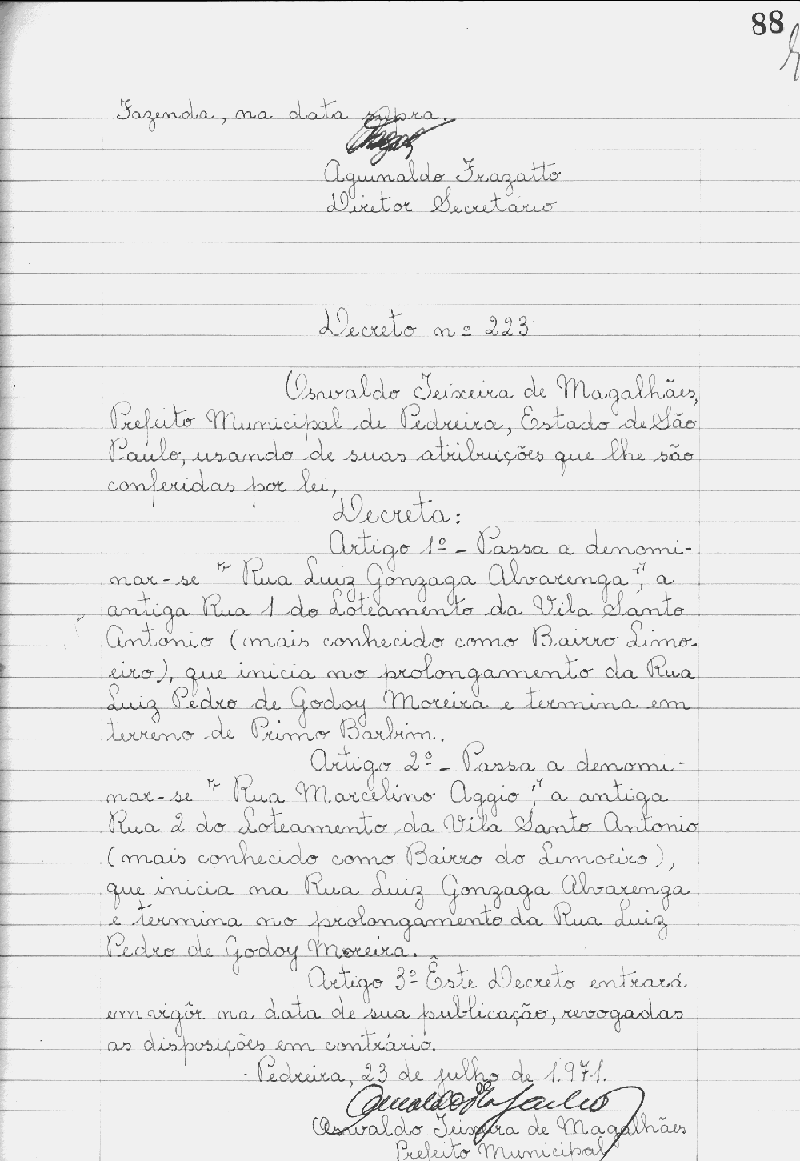 88
Fazenda, na data supra.
Aguinaldo Frazatto
Diretor Secretário
Decreto nº 223
Oswaldo Teixeira de Magalhães,
Prefeito Municipal de Pedreira, Estado de São
Paulo, usando de suas atribuições que lhe são
conferidas por lei,
Decreta:
Artigo 1º - Passa a denomi-
nar-se "Rua Luiz Gonzaga Alvarenga", a
antiga Rua 1 do Loteamento da Vila Santo
Antonio (mais conhecido como Bairro Limo-
eiro), que inicia no prolongamento da Rua
Luiz Pedro de Godoy Moreira e termina em
terreno de Primo Barbim.
Artigo 2º - Passa a denomi-
nar-se "Rua Marcelino Aggio", a antiga
Rua 2 do Loteamento da Vila Santo Antonio
(mais conhecido como Bairro do Limoeiro),
que inicia na Rua Luiz Gonzaga Alvarenga
e termina no prolongamento da Rua Luiz
Pedro de Godoy Moreira.
Artigo 3º Êste Decreto entrará
em vigôr na data de sua publicação, revogadas
as disposições em contrário.
Pedreira, 23 de julho de 1.971.
Oswaldo Teixeira de Magalhães
Prefeito Municipal